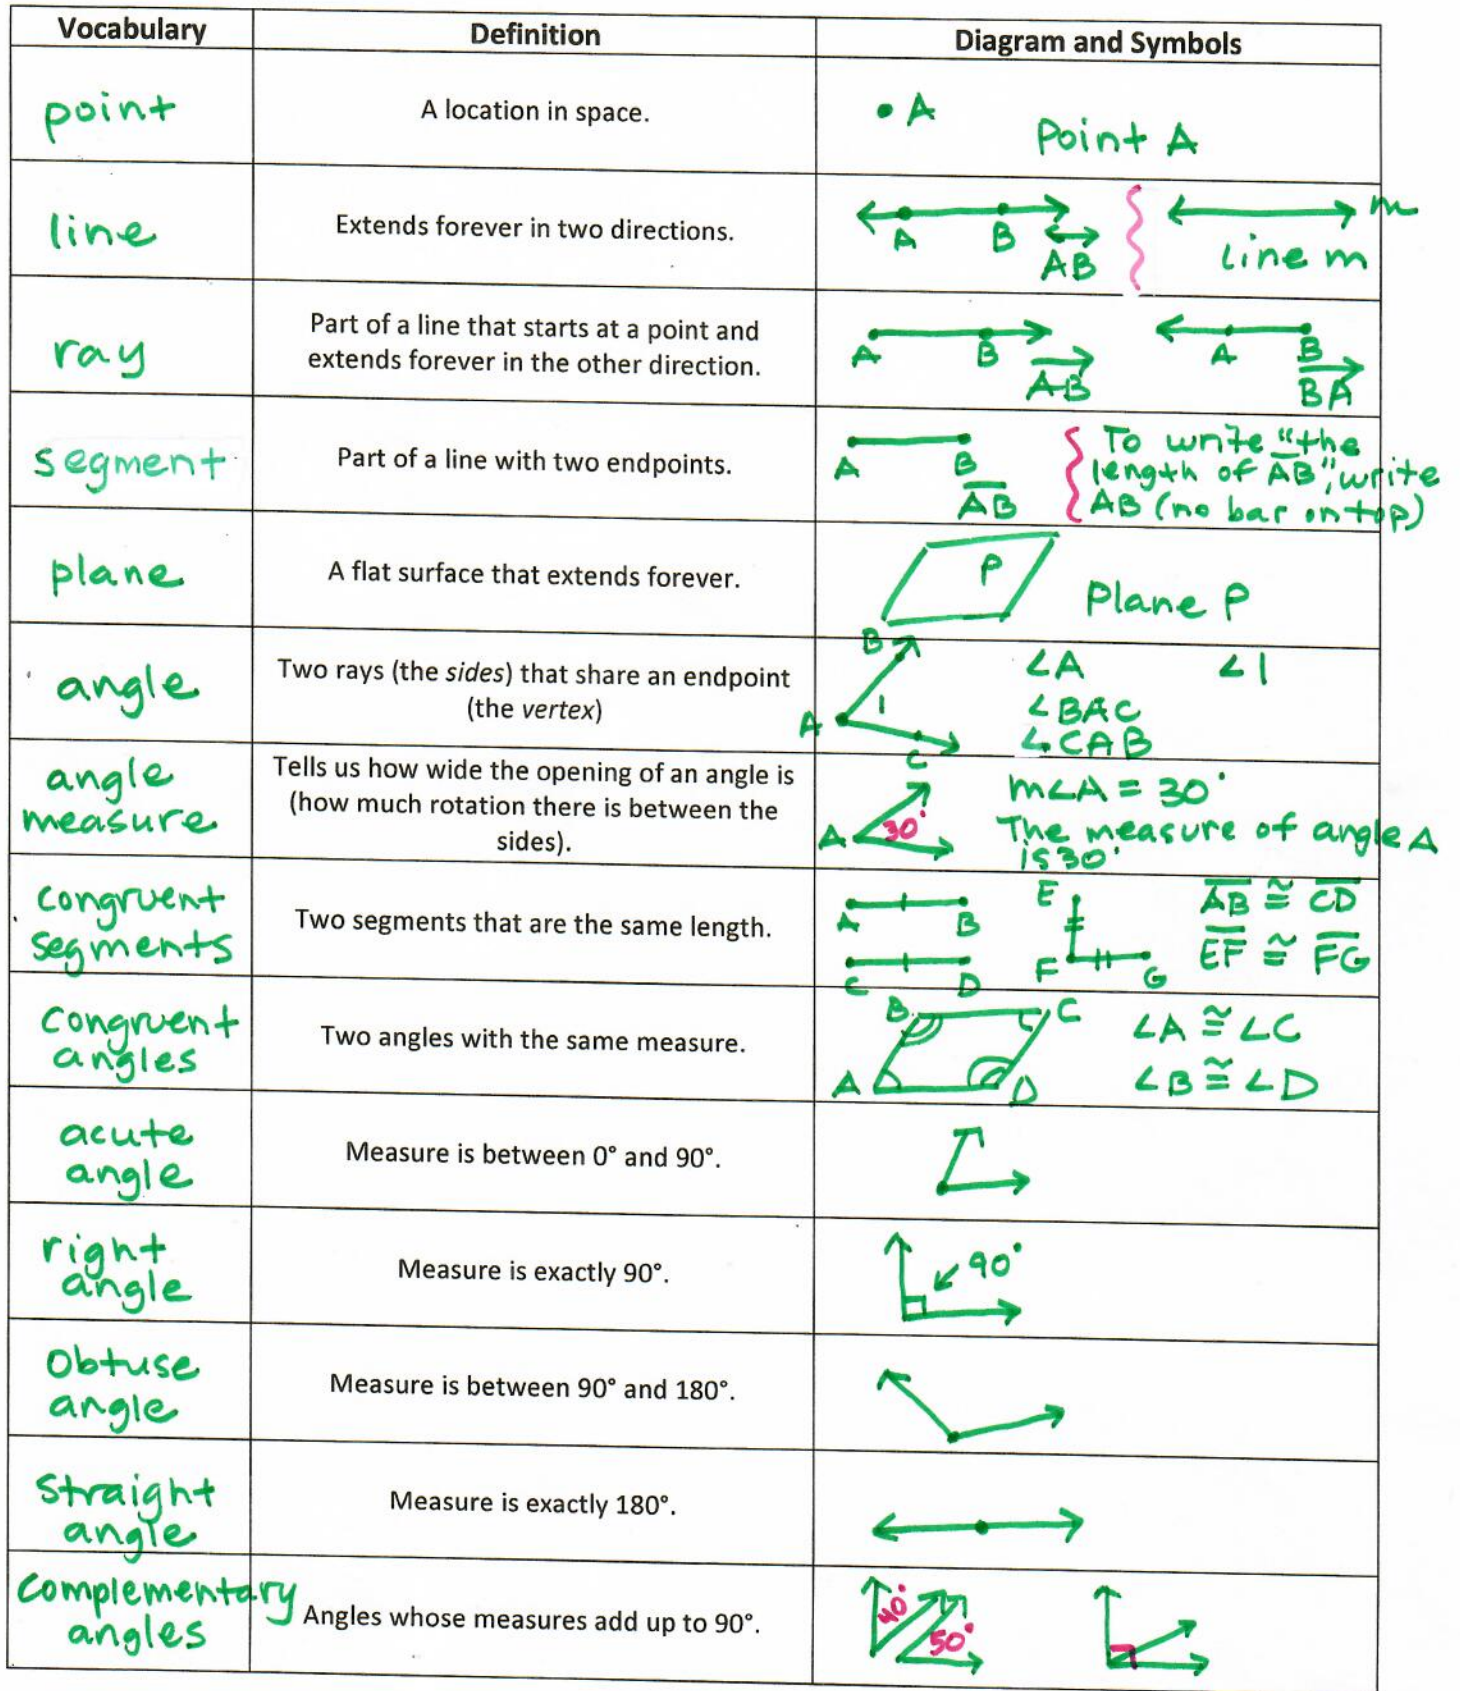 Vocabulary
Definition
Diagram and Symbols
point
A location in space.
A
Point A
line
Extends forever in two directions.
A B
AB
m
Line m
ray
Part of a line that starts at a point and
extends forever in the other direction.
A B
AB
A B
BA
segment
Part of a line with two endpoints.
A B
AB
To write "the
length of AB", write
AB (no bar on top)
plane
A flat surface that extends forever.
P
Plane P
angle
Two rays (the sides) that share an endpoint
(the vertex)
B
1
A
C
∠A ∠1
∠BAC
∠CAB
angle
measure
Tells us how wide the opening of an angle is
(how much rotation there is between the
sides).
A 30°
m∠A = 30°
The measure of angle A
is 30°
congruent
segments
Two segments that are the same length.
A B
C D
E
F G
AB ≅ CD
EF ≅ FG
Congruent
angles
Two angles with the same measure.
B C
A D
∠A ≅ ∠C
∠B ≅ ∠D
acute
angle
Measure is between 0° and 90°.
right
angle
Measure is exactly 90°.
90°
Obtuse
angle
Measure is between 90° and 180°.
Straight
angle
Measure is exactly 180°.
Complementary
angles
Angles whose measures add up to 90°.
40°
50°